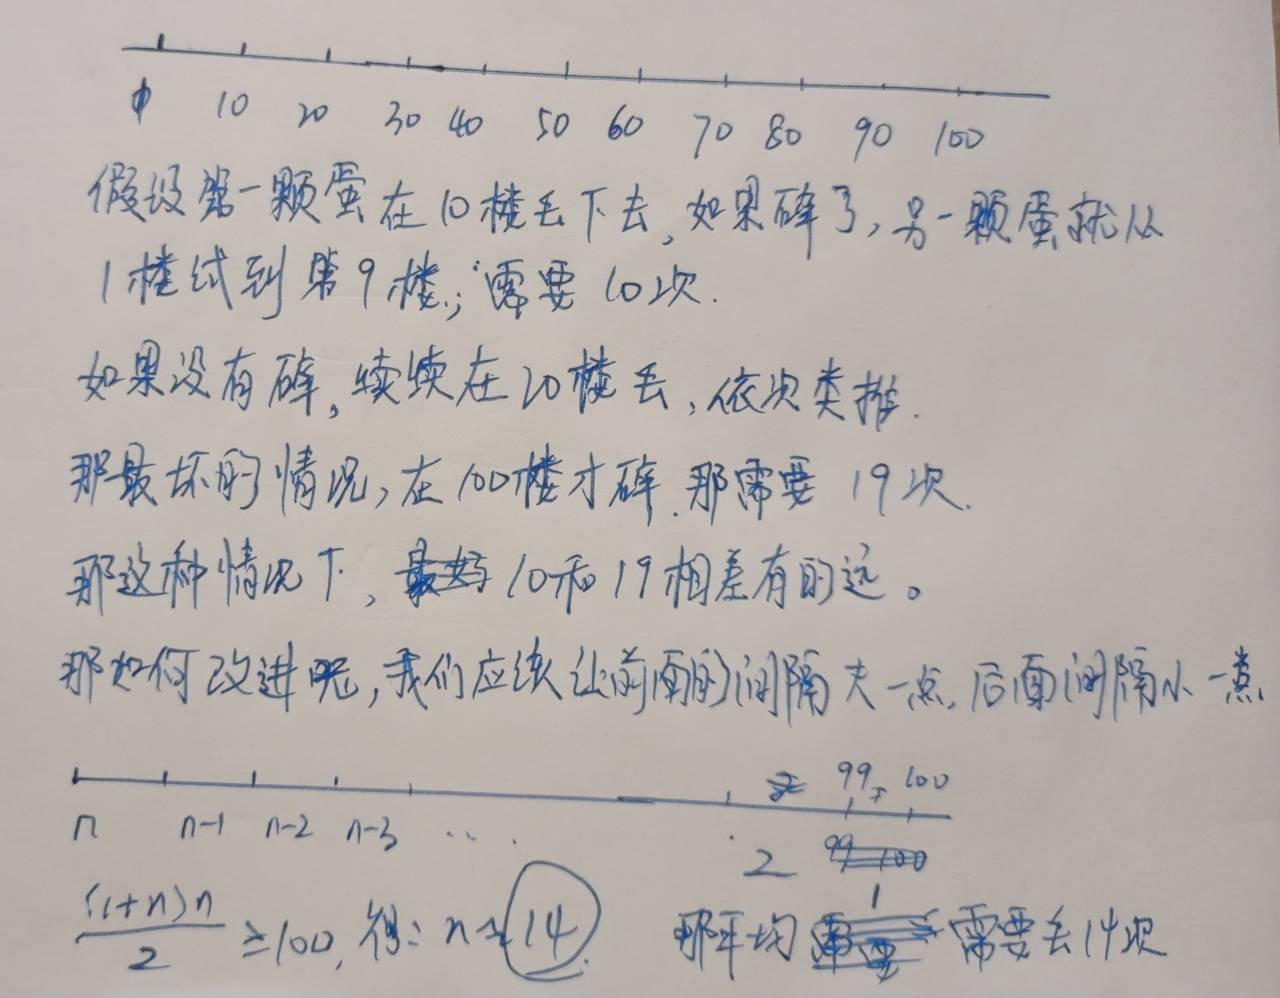 0 10 20 30 40 50 60 70 80 90 100
假设第一颗蛋在10楼丢下去,如果碎了,另一颗蛋就从
1楼试到第9楼,需要10次.
如果没有碎,续续在20楼丢,依次类推.
那最坏的情况,在100楼才碎.那需要 19次.
那这种情况下,10和19相差有的远。
那如何改进呢,我们应该让前面的间隔大一点,后面间隔小一点
99 100
n n-1 n-2 n-3 ... 2 1
(1+n)n/2 ≥100,得:n≥14 那平均需要丢14次